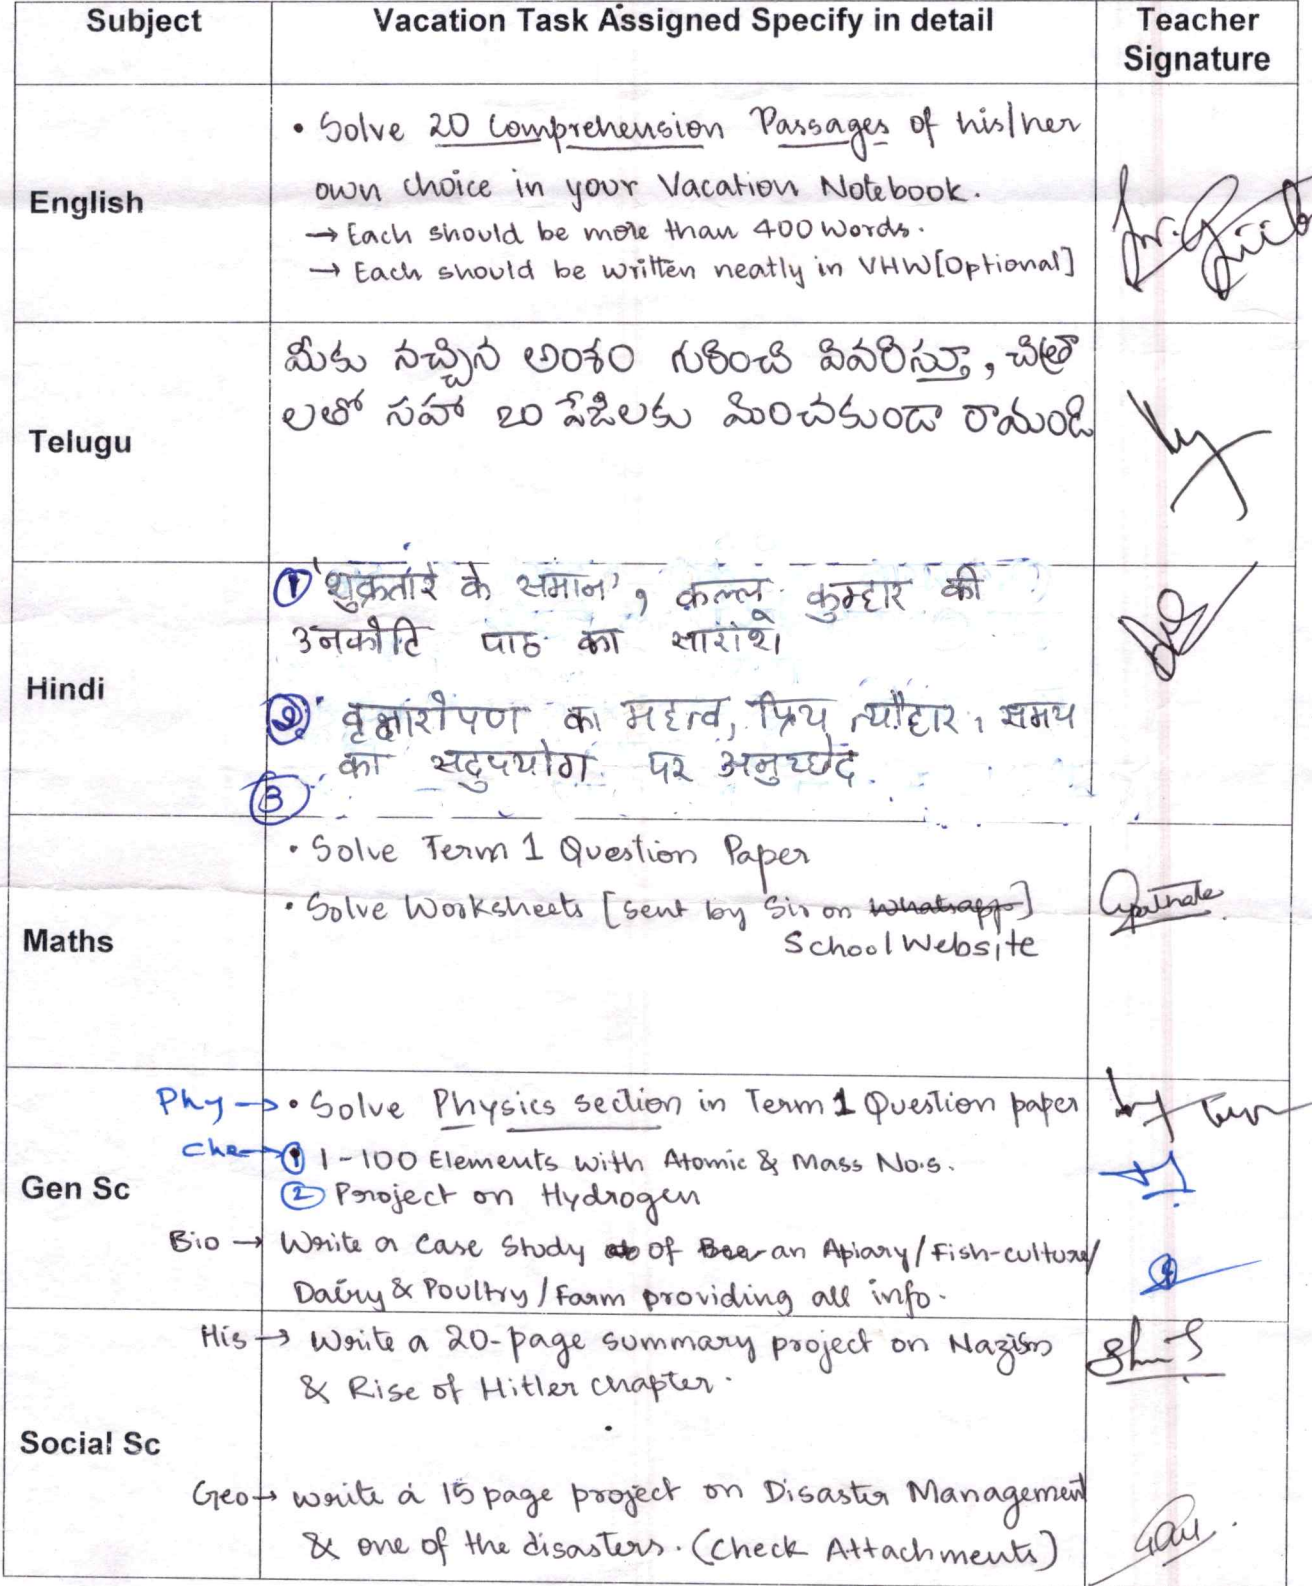 Subject Vacation Task Assigned Specify in detail Teacher Signature
English
• Solve 20 Comprehension Passages of his/her
own choice in your Vacation Notebook.
→ Each should be more than 400 words.
→ Each should be written neatly in VHW [Optional]
Telugu
మీకు నచ్చిన అంశం గురించి వివరిస్తూ, చిత్రా
లతో సహా 20 పేజీలకు మించకుండా రాముండి
Hindi
① 'शुक्रतारे के समान', कल्लू कुम्हार की
उनकोटि पाठ का सारांश।
②. वृक्षारोपण का महत्व, प्रिय त्यौहार, समय
का सदुपयोग पर अनुच्छेद.
③
Maths
• Solve Term 1 Question Paper
• Solve Worksheets [sent by Sir on whatsapp]
School Website
Gen Sc
Phy → • Solve Physics section in Term 1 Question paper
Che → ① 1-100 Elements with Atomic & Mass No.s.
② Project on Hydrogen
Bio → Write a Case Study of Bee an Apiary/Fish-culture/
Dairy & Poultry/Farm providing all info.
Social Sc
His → Write a 20-page summary project on Nazism
& Rise of Hitler chapter.
Geo → write a 15 page project on Disaster Management
& one of the disasters. (Check Attachments)